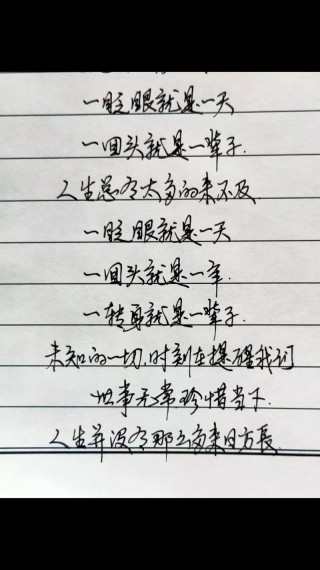 一眨眼就是一天
一回头就是一辈子.
人生总有太多的来不及
一眨眼就是一天
一回头就是一年.
一转身就是一辈子.
未知的一切,时刻在提醒我们
世事无常珍惜当下.
人生并没有那么多来日方長.